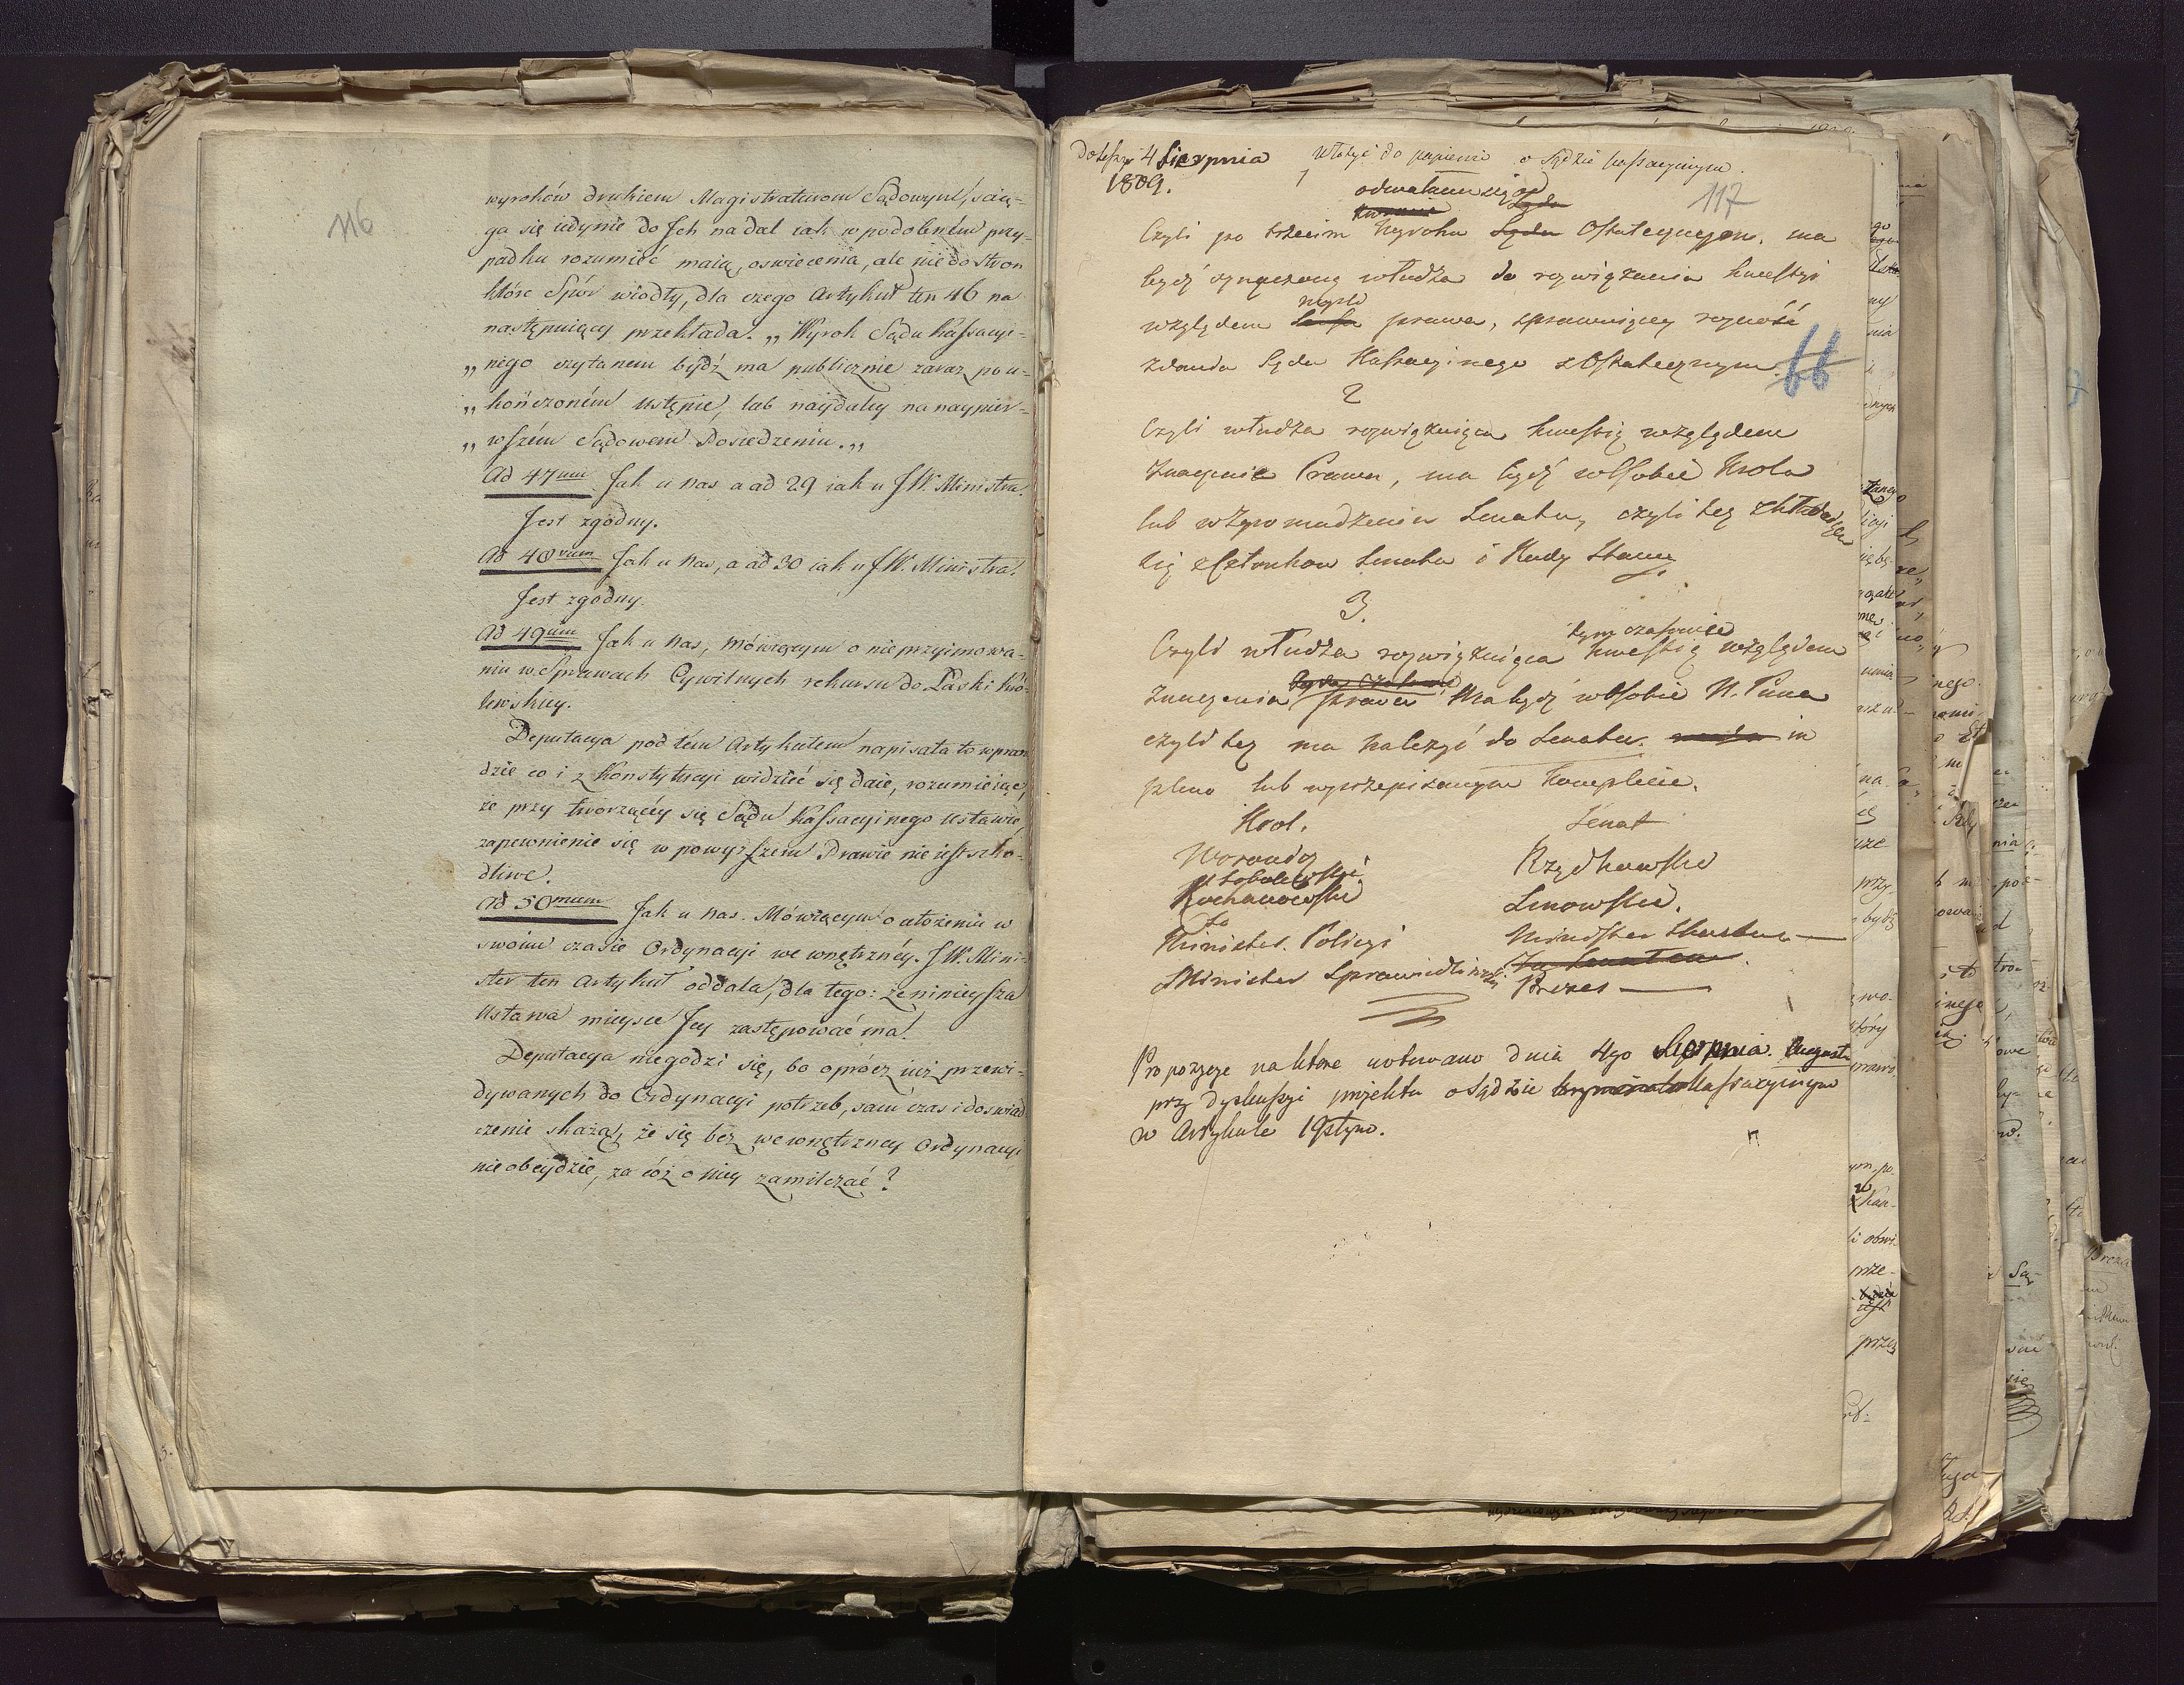 116
wyroków drukiem Magistraturom Sądowym, ścią-
ga się iedynie do Ich nadal iak w podobném przy-
padku rozumieć maią, oswiecenia, ale nie do stron
które Spór wiodły, dla czego Artykuł ten 46 na
następuiący przekłada. „Wyrok Sądu Kassacyi-
„nego czytanem bydź ma publicznie zaraz po u-
„kończoném ustępie, lub naydaley na naypier-
„wszém Sądowem Posiedzeniu.„
Ad 47mum Jak u nas a ad 29 iak u JW. Ministra.
Jest zgodny.
Ad 48vum Jak u nas, a ad 30 iak u JW. Ministra.
Jest zgodny.
Ad 49num Jak u nas, mówiącym o nieprzyimowa-
niu w Sprawach Cywilnych rekursu do Łaski Kró-
lewskiey.
Deputacya pod tém Artykułem napisała to wpraw
dzie co i z Konstytucyi widzieć się daie, rozumieiąc,
że przy tworzącéy się Sądu Kassacyinego Ustawie
zapewnienie się w powyższem Prawie nie iest szko-
dliwe.
Ad 50mum Jak u nas. Mówiącym o ułożeniu w
swoim czasie Ordynacyi wewnętrznéy. JW. Mini-
ster ten Artykuł oddala, dla tego: że ninieysza
Ustawa mieysce Jey zastępować ma.
Deputacya niegodzi się, bo oprócz iuż przewi-
dywanych do Ordynacyi potrzeb, sam czas i doswiad
czenie skażą, że się bez wewnętrzney Ordynacyi
nieobeydzie, za cóż o niey zamilczać?
4 Sierpnia Włożyć do papierów o Sądzie kassacyinym.
1809.
1
117
odwołaniu się od
Czyli po trzecim Wyroku Sądu Ostatecznym, ma
bydź oznaczoną władza do rozwiązania kwestyi
myśli
względem prawa, sprawuiącey rożność
zdania Sądu Kassacyinego z Ostatecznym.
66
2
Czyli władza rozwiązuiąca kwestię względem
Znaczenia Prawa, ma bydź w Osobie Krola
lub w Zgromadzeniu Senatu, czyli też składać
się z Członkow Senatu i Rady Stanu.
3.
tymczasowie
Czyli władza rozwiązuiąca kwestię względem
Znaczenia prawa Ma bydź w Osobie N. Pana
czyli też ma należyć do Senatu. in
pleno lub wyżzepisanym komplecie.
Krol. Senat
Woronicz Rządkowski
Sobolewski
Kochanowski Linowski.
Minister Policyi Minister Skarbu —
Minister Sprawiedliwości Prezes —
Propozycye na które wotowano dnia 4go Sierpnia. Augusta
przy dyskussyi projektu o Sądzie Kassacyinym
w Artykule 19stym.